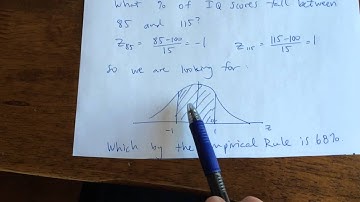 What % of IQ scores fall between
85 and 115?
Z₈₅ = 85-100/15 = -1 Z₁₁₅ = 115-100/15 = 1
So we are looking for:
-1 1 z
Which by the Empirical Rule is 68%